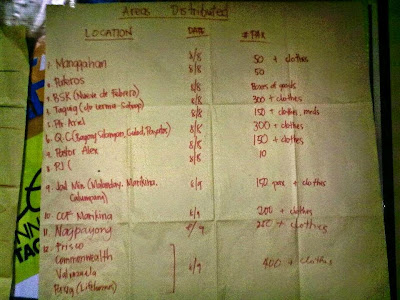 Areas Distributed
LOCATION DATE # PAX
1. Manggahan 8/8 50 + clothes
2. Pateros 8/8 50
3. BSK (Nueve de Febrero) 8/8 Boxes of goods
4. Taguig 8/8 300 + clothes
5. Ptr. Ariel 8/8 150 + clothes, meds
6. Q.C (Bagong Silangan, Payatas) 8/8 300 + clothes
7. Pastor Alex 8/8 150 + clothes
8. RJ ( 8/8 10
9. Jail Min (Malanday. Marikina. 8/9 150 pax + clothes
Calumpang)
10. CCF Marikina 8/9 200 + clothes
11. Nagpayong 8/9 200 + clothes
12. Frisco
Commonwealth 8/9 400 + clothes
Valenzuela
Pasig